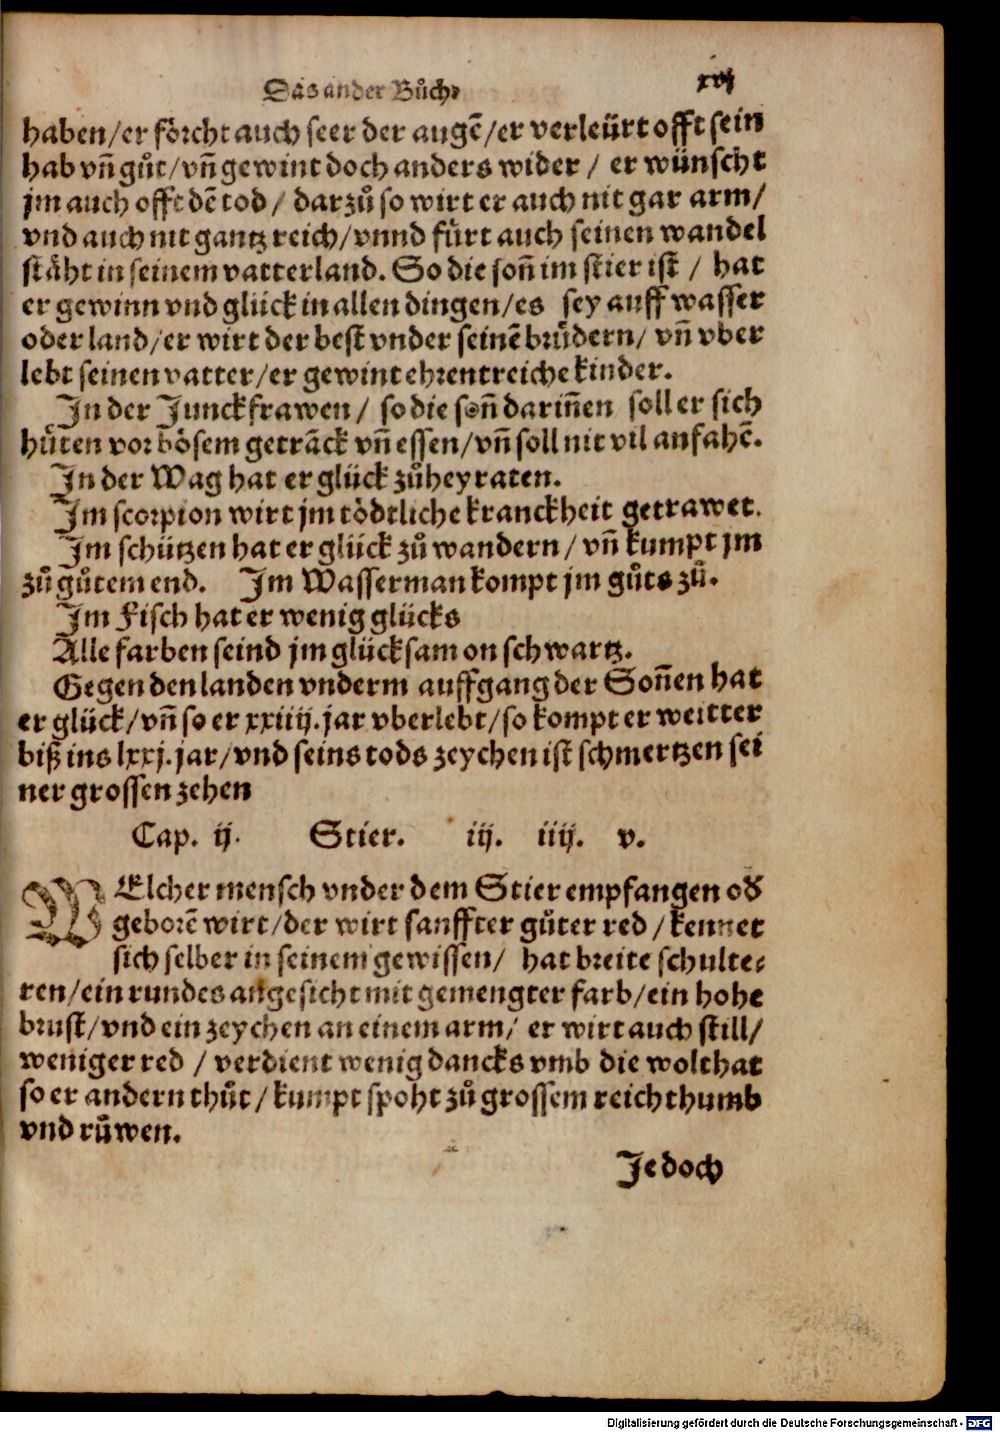 Das ander Bůch, xvj
haben/er förcht auch seer der augē/er verleürt offt sein
hab vn̄ gůt/vn̄ gewint doch anders wider / er wünscht
jm auch offt dē tod / darzů so wirt er auch nit gar arm/
vnd auch nit gantz reich/vnnd fürt auch seinen wandel
stäht in seinem vatterland. So die son̄ im stier ist / hat
er gewinn vnd glück in allen dingen/es sey auff wasser
oder land/er wirt der best vnder seinē brůdern/ vn̄ vber
lebt seinen vatter/er gewint ehrentreiche kinder.
In der Junckfrawen / so die son̄ darin̄en soll er sich
hůten vor bösem getrǟck vn̄ essen/vn̄ soll nit vil anfahē.
In der Wag hat er glück zů heyraten.
Im scorpion wirt jm tödtliche kranckheit getrawet.
Im schützen hat er glück zů wandern / vn̄ kumpt jm
zů gůtem end. Im Wasserman kompt jm gůts zů.
Im Fisch hat er wenig glücks
Alle farben seind jm glücksam on schwartz.
Gegen den landen vnderm auffgang der Son̄en hat
er glück/vn̄ so er xxiiij. jar vberlebt/so kompt er weitter
biß ins lxxj. jar/vnd seins tods zeychen ist schmertzen sei
ner grossen zehen
Cap. ij. Stier. iij. iiij. v.
WElcher mensch vnder dem Stier empfangen od
geborē wirt/der wirt sanffter gůter red / kennet
sich selber in seinem gewissen/ hat breite schulte⸗
ren/ein rundes angesicht mit gemengter farb/ein hohe
brust/vnd ein zeychen an einem arm/ er wirt auch still/
weniger red / verdient wenig dancks vmb die wolthat
so er andern thůt / kumpt spoht zů grossem reichthumb
vnd růwen.
Jedoch
Digitalisierung gefördert durch die Deutsche Forschungsgemeinschaft - DFG